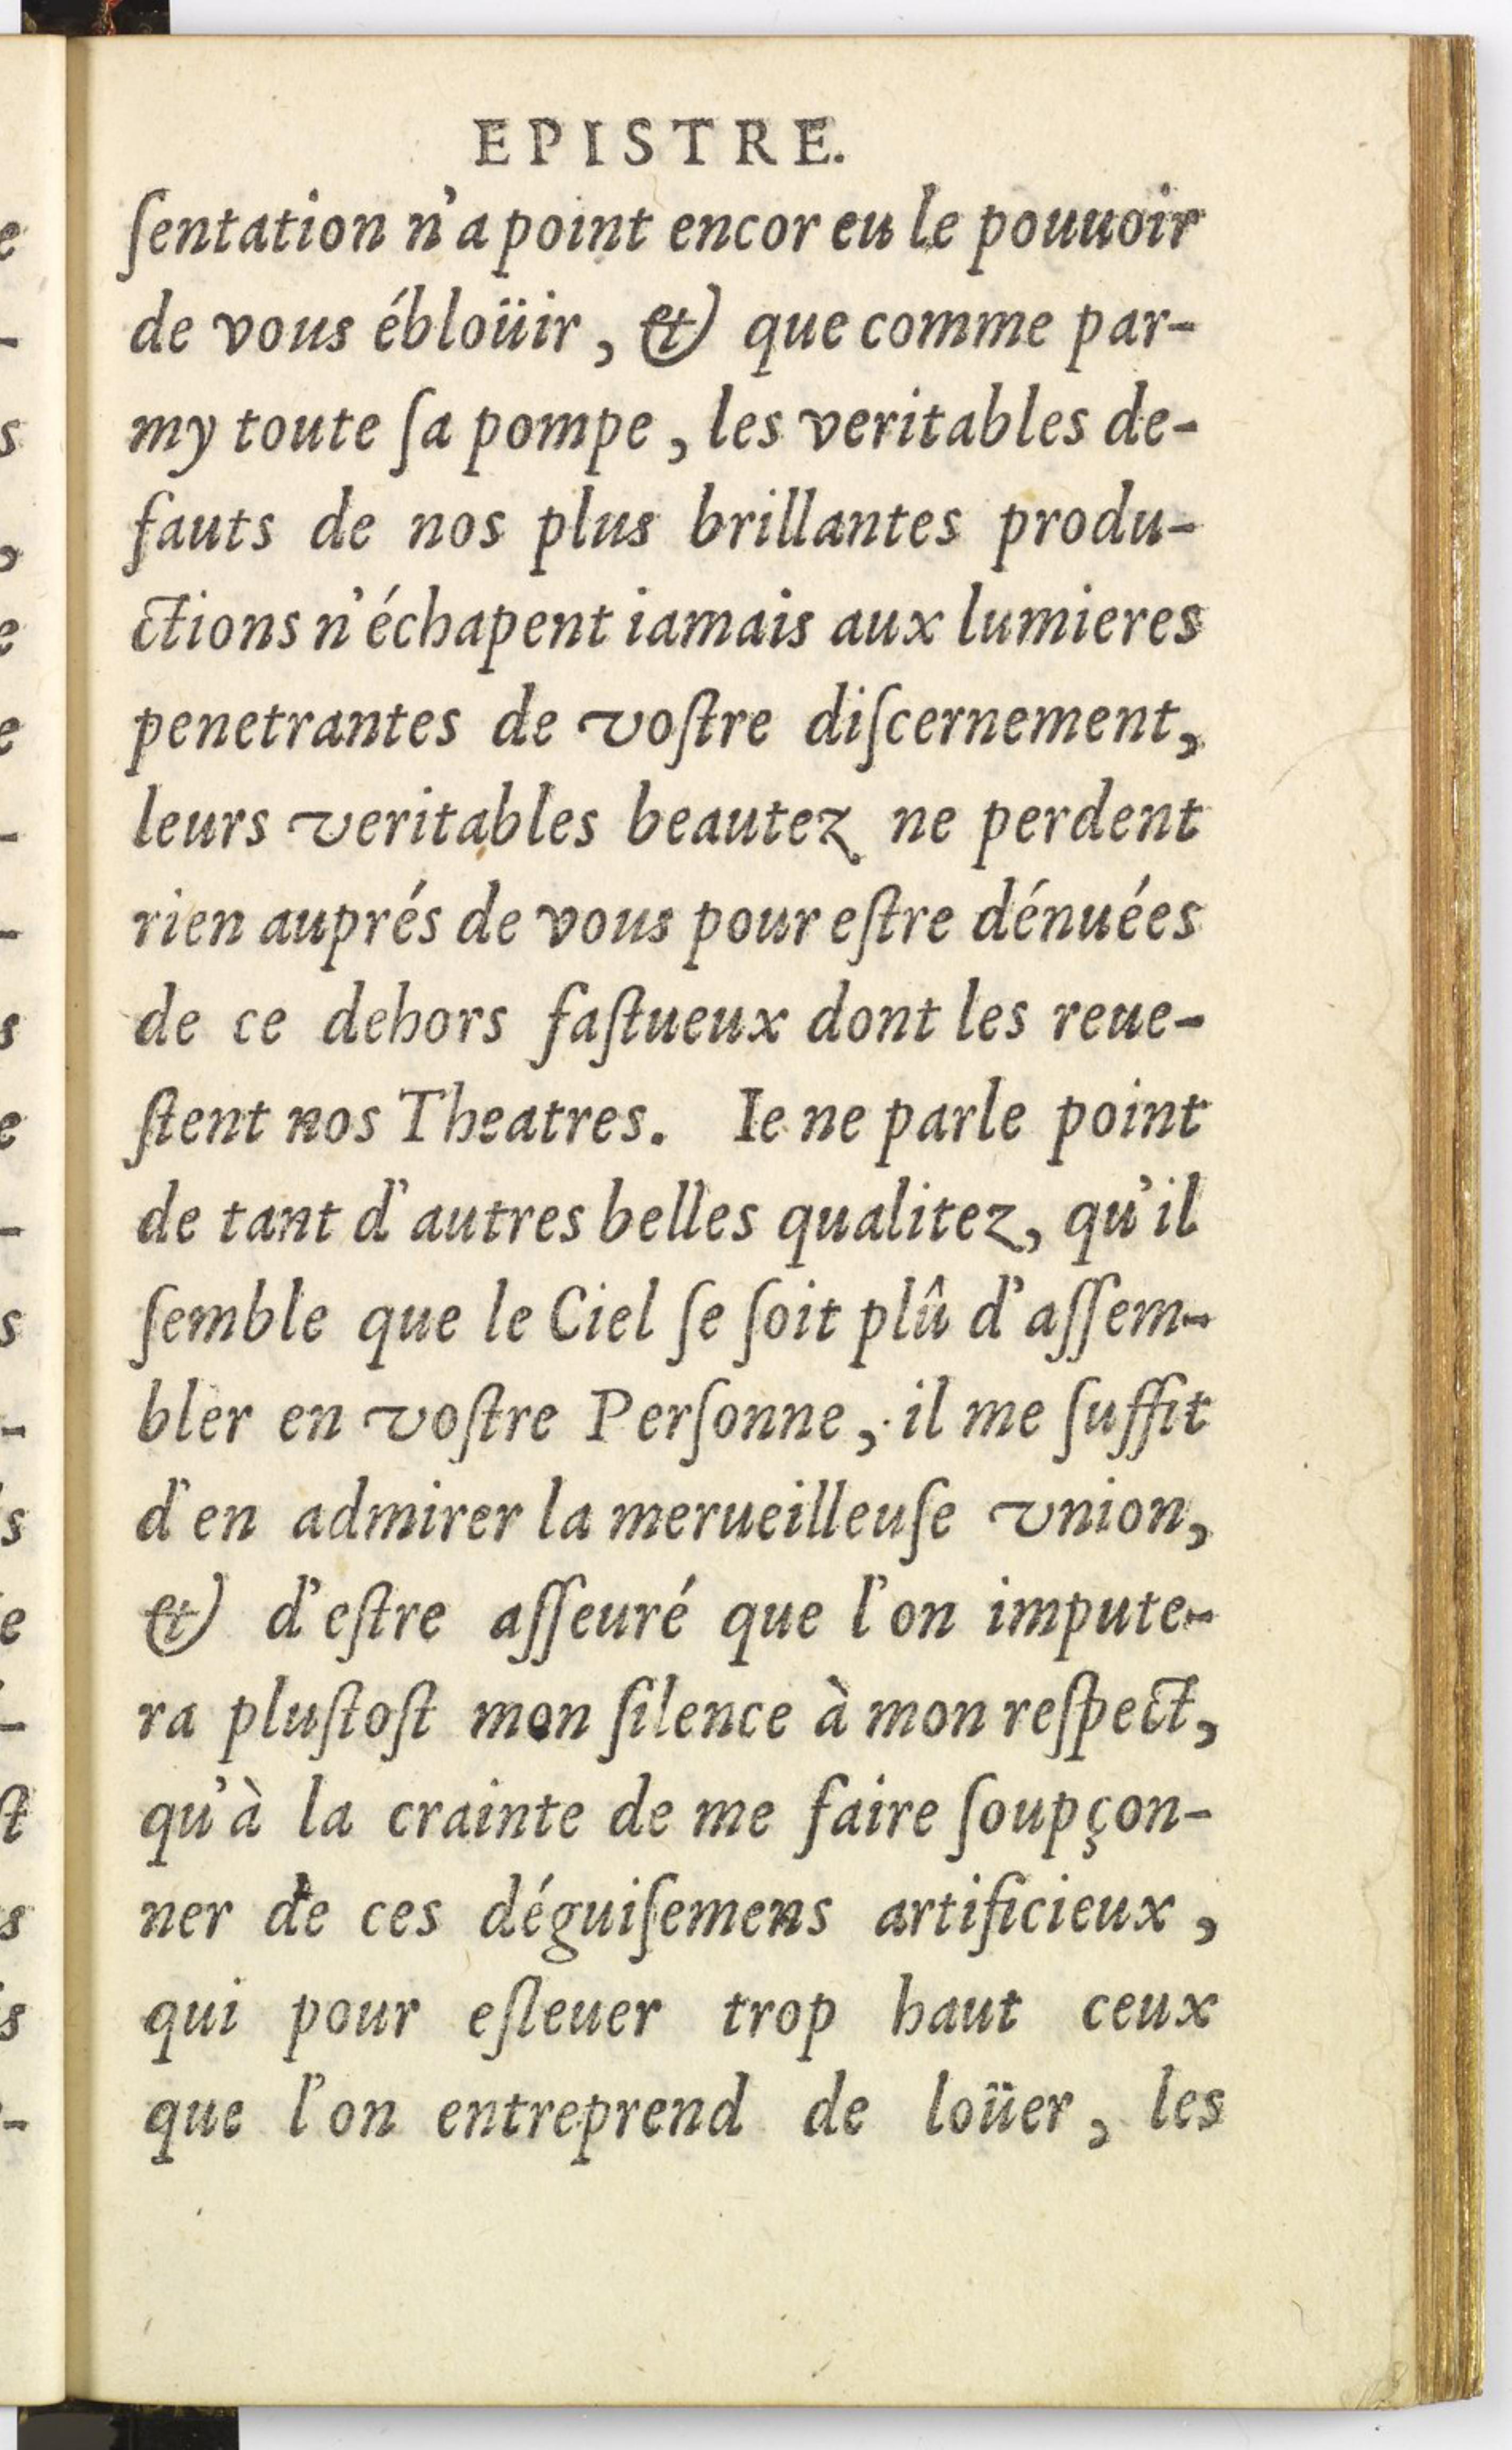 EPISTRE.
ſentation n'a point encor eu le pouuoir
de vous ébloüir, & que comme par-
my toute ſa pompe, les veritables de-
fauts de nos plus brillantes produ-
ctions n'échapent iamais aux lumieres
penetrantes de voſtre diſcernement,
leurs veritables beautez ne perdent
rien auprés de vous pour eſtre dénuées
de ce dehors faſtueux dont les reue-
ſtent nos Theatres. Ie ne parle point
de tant d'autres belles qualitez, qu'il
ſemble que le Ciel ſe ſoit plû d'aſſem-
bler en voſtre Perſonne, il me ſuffit
d'en admirer la merueilleuſe vnion,
& d'eſtre aſſeuré que l'on impute-
ra pluſtoſt mon ſilence à mon reſpect,
qu'à la crainte de me faire ſoupçon-
ner de ces déguiſemens artificieux,
qui pour eſleuer trop haut ceux
que l'on entreprend de loüer, les